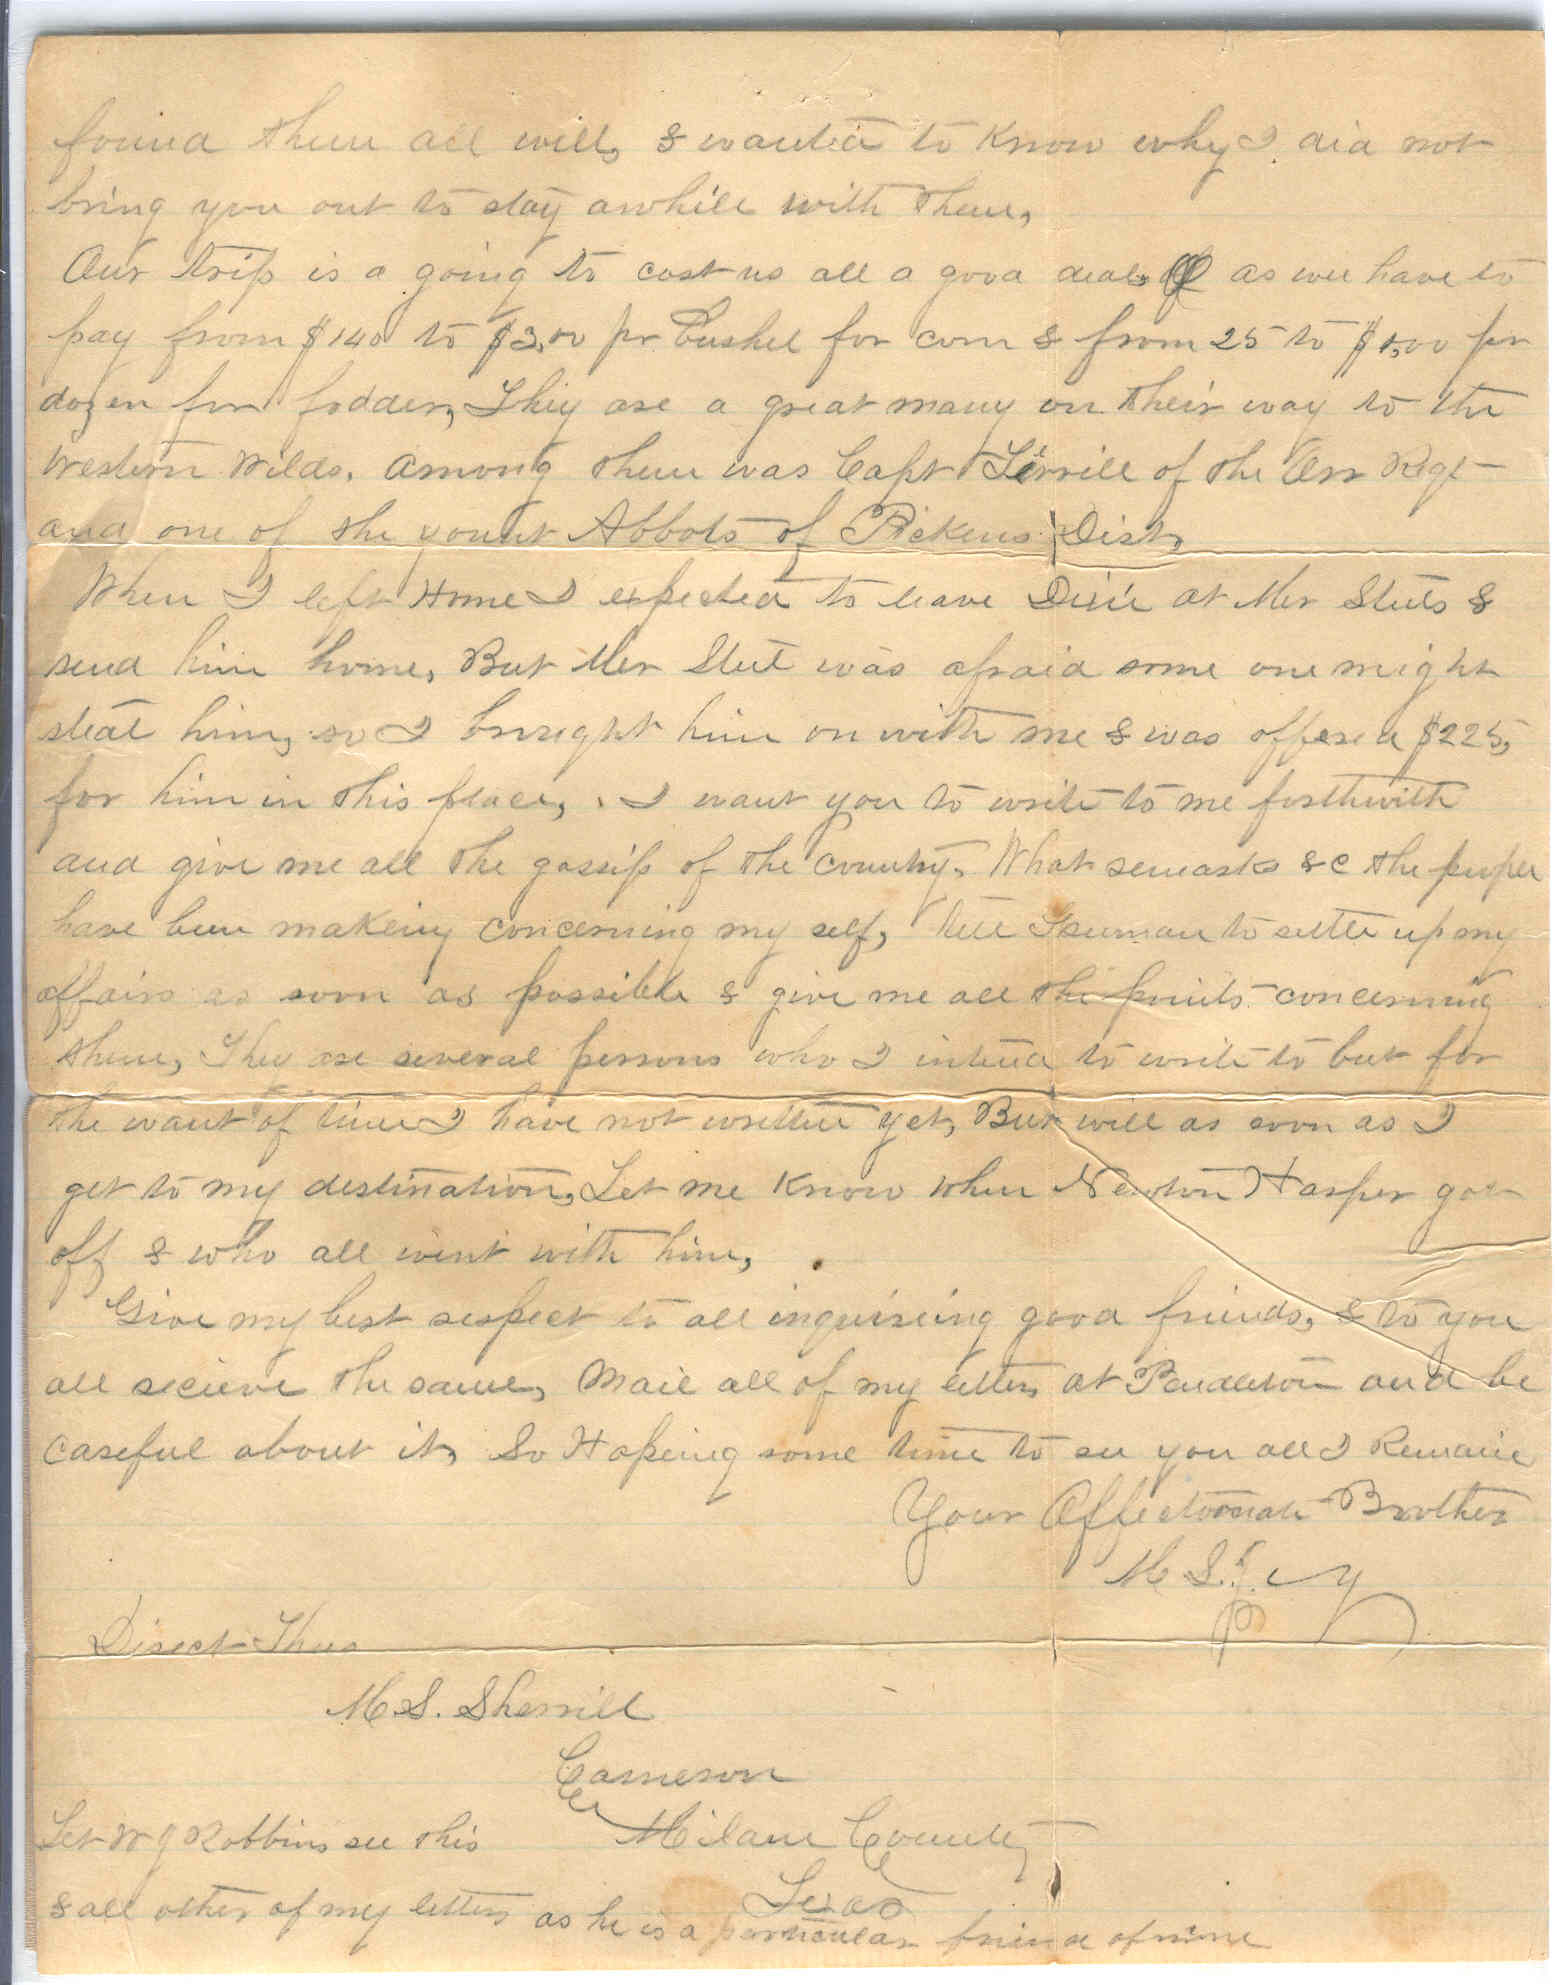 found them all well, & wanted to Know why I did not
bring you out to stay awhile with them,
Our trip is a going to cost us all a good deal, as wee have to
pay from $140 to $3,00 pr Bushel for corn & from 25 to $1,00 pr
dozen for fodder, They are a great many on their way to the
Western Wilds. Among them was Capt of the Orr Regt
and one of the Abbots of Pickens Dist,
When I left Home I expected to leave Dixie at Mer Steets &
send him home, But Mer Steet was afraid some one might
steal him, so I brought him on with me & was offered $225,
for him in this place, I want you to write to me forthwith
and give me all the gossip of the country, What remarks &c the peopel
have been makeing concerning my self, Tell to settle up my
affairs as soon as possible & give me all the points concerning
them, They are several persons who I intend to write to but for
the want of time I have not written yet, But will as soon as I
get to my destination, Let me Know when Newton Harper got
off & who all went with him,
Give my best respect to all inquireing good friends, & to you
all recieve the same, Mail all of my letters at Pendleton and be
careful about it, So Hopeing some time to see you all I Remain
Your Affectionate Brother
M S.
Direct Thus
M. S. Sherrill
Cameron
Let W J Robbins see this Milam County
Texas
& all other of my letters as he is a particular friend of mine